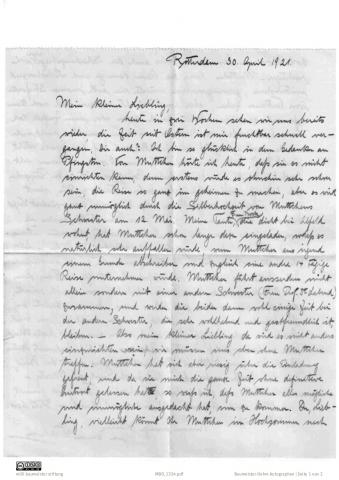 Rotterdam 30. April 1921.
Mein kleiner Liebling,
heute in zwei Wochen sehen wir uns bereits
wieder, die Zeit seit Ostern ist mir furchtbar schnell ver-
gangen, Dir auch? Ich bin so glücklich in dem Gedanken an
Pfingsten. Von Muttchen hörte ich heute, dass sie es nicht
einrichten kann, denn erstens würde es ohnehin sehr schwer
sein, die Reise so ganz im geheimen zu machen, aber es wird
ganz unmöglich durch die Silberhochzeit von Muttchens
Schwester am 12 Mai. Meine Tante, die dicht bei
wohnt hat Muttchen schon lange dazu eingeladen, sodass es
natürlich sehr auffallen würde wenn Muttchen aus irgend
einem Grunde abschreiben und zugleich eine andre 14 tägige
Reise unternehmen würde. Muttchen fährt ausserdem nicht
allein sondern mit einer andern Schwester (Frau Prof.
zusammen, und werden die beiden dann wohl einige Zeit bei
der andern Schwester, die sehr wohlhabend und gastfreundlich ist
bleiben. — Also mein kleiner Liebling da wird es nicht anders
wir müssen uns eben ohne Muttchen
treffen. Muttchen hat sich aber riesig über die Einladung
gefreut, und da sie mich die ganze Zeit ohne definitive
Antwort gelassen hatte so weiss ich, dass Muttchen alles mögliche
und unmögliche ausgedacht hat, um zu kommen. Du Lieb-
ling, vielleicht könnt Ihr Muttchen im Hochsommer noch
willi baumeister stiftung
Seite 1 von 2